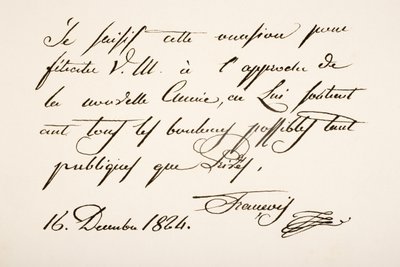 Je saisis cette occasion pour
féliciter V. M. à l'approche de
la nouvelle Année, en Lui souhaitant
tous les bonheurs possibles tant
publiques que Privés,
François
16. Decembre 1824.